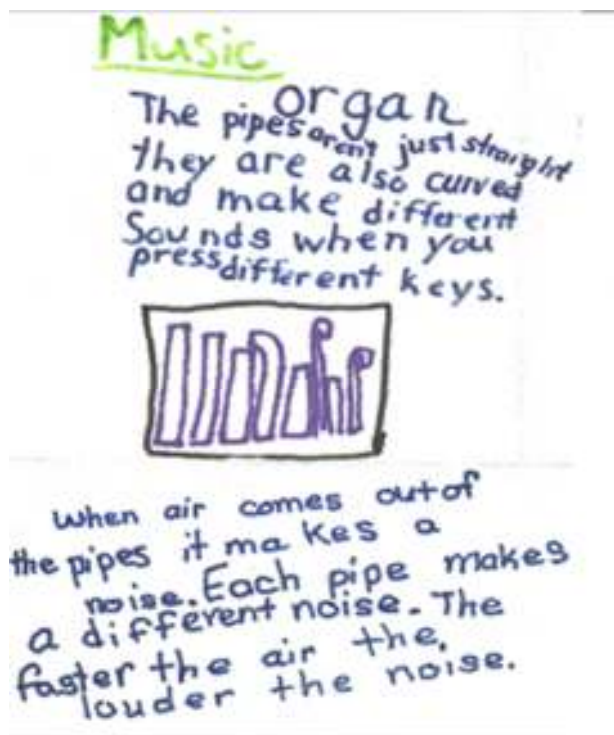 Music
organ
The pipes aren't just straight
they are also curved
and make different
Sounds when you
press different keys.
When air comes out of
the pipes it makes a
noise. Each pipe makes
a different noise. The
faster the air the,
louder the noise.